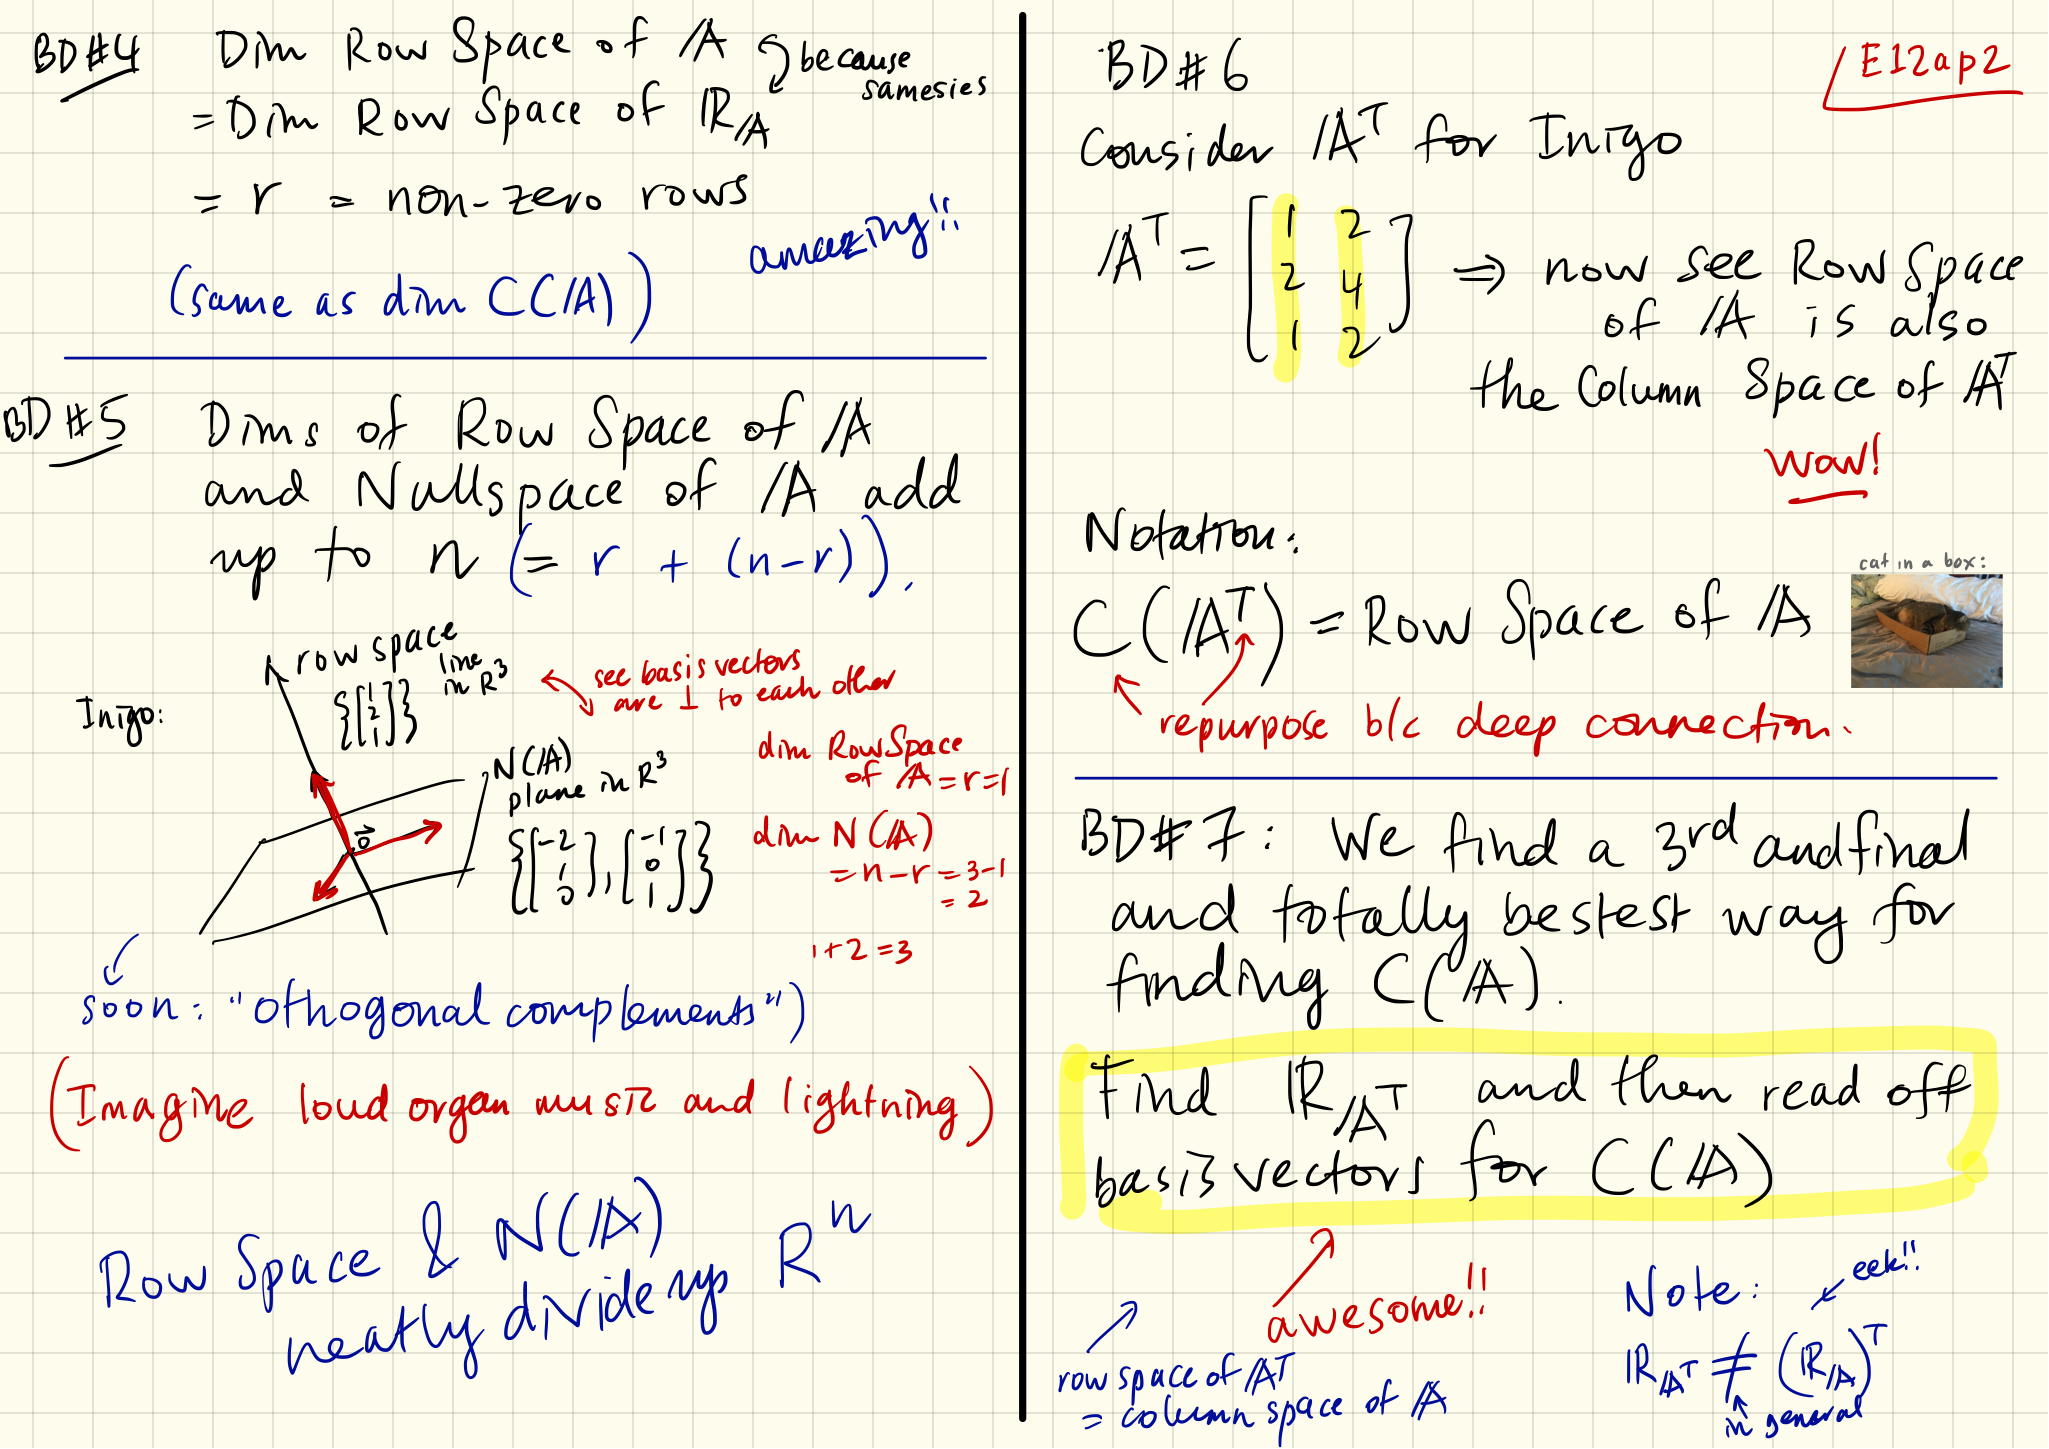 BD#4 Dim Row Space of A because
samesies
= Dim Row Space of R_A
= r = non-zero rows
amazing!!
(same as dim C(A))
BD#5 Dims of Row Space of A
and Nullspace of A add
up to n (= r + (n-r)).
Inigo:
row space
line
in R³
{[1 2 1]}
see basis vectors
are ⊥ to each other
N(A)
plane in R³
{[-2 1 0], [-1 0 1]}
0⃗
dim Row Space
of A = r = 1
dim N(A)
= n-r = 3-1
= 2
1+2=3
soon: "othogonal complements")
(Imagine loud organ music and lightning)
Row Space & N(A)
neatly divide up Rⁿ
E12ap2
BD#6
Consider Aᵀ for Inigo
Aᵀ = [1 2
2 4
1 2] ⇒ now see Row Space
of A is also
the Column Space of Aᵀ
wow!
Notation:
cat in a box:
C(Aᵀ) = Row Space of A
repurpose b/c deep connection.
BD#7: We find a 3rd and final
and totally bestest way for
finding C(A).
Find R_Aᵀ and then read off
basis vectors for C(A)
awesome!!
row space of Aᵀ
= column space of A
Note: eek!!
R_Aᵀ ≠ (R_A)ᵀ
in general